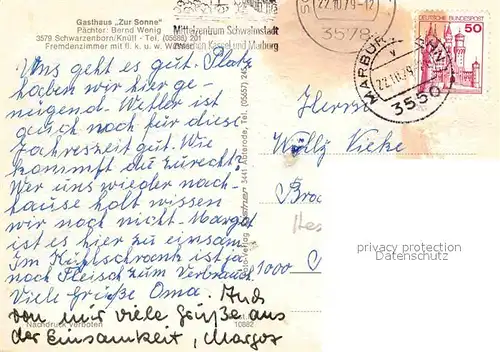 Gasthaus „Zur Sonne“
Pächter: Bernd Wenig
3579 Schwarzenborn/Knüll - Tel. (05686) 201
Fremdenzimmer mit fl. k. u. w. Wasser
Mittelzentrum Schwalmstadt
zwischen Kassel und Marburg
22.10.79-12
3578
MARBURG
v
22.10.79
3550
DEUTSCHE BUNDESPOST
50
Uns geht es gut. Platz
haben wir hier ge-
nügend. Wetter ist
auch noch für diese
Jahreszeit gut. Wie
kommst du zurecht?
Wer uns wieder nach-
hause holt wissen
wir noch nicht. Margot
ist es hier zu einsam.
Im Kühlschrank ist ja
noch Fleisch zum Verbrauch
Viele Grüße Oma. Auch
von mir viele Grüße aus
der Einsamkeit, Margot
Herrn
Willy
1000
3441 Abterode, Tel. (05657) 245
privacy protection
Datenschutz
Nachdruck verboten
10882